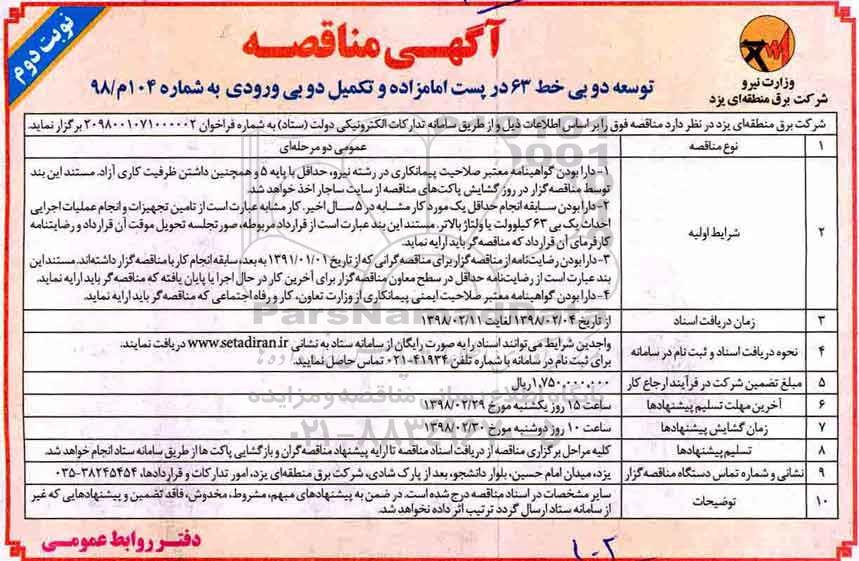 نوبت دوم
آگهی مناقصه
توسعه دو بی خط ۶۳ در پست امامزاده و تکمیل دو بی ورودی به شماره ۱۰۴م/۹۸
وزارت نیرو
شرکت برق منطقه‌ای یزد
شرکت برق منطقه‌ای یزد در نظر دارد مناقصه فوق را بر اساس اطلاعات ذیل و از طریق سامانه تدارکات الکترونیکی دولت (ستاد) به شماره فراخوان ۲۰۹۸۰۰۱۰۷۱۰۰۰۰۰۲ برگزار نماید.
۱ نوع مناقصه عمومی دو مرحله‌ای
۲ شرایط اولیه
۱- دارا بودن گواهینامه معتبر صلاحیت پیمانکاری در رشته نیرو، حداقل با پایه ۵ و همچنین داشتن ظرفیت کاری آزاد. مستند این بند
توسط مناقصه‌گزار در روز گشایش پاکت‌های مناقصه از سایت ساجار اخذ خواهد شد.
۲- دارا بودن سابقه انجام حداقل یک مورد کار مشابه در ۵ سال اخیر. کار مشابه عبارت است از تامین تجهیزات و انجام عملیات اجرایی
احداث یک بی ۶۳ کیلوولت یا ولتاژ بالاتر. مستند این بند عبارت است از قرارداد مربوطه، صورتجلسه تحویل موقت آن قرارداد و رضایتنامه
کارفرمای آن قرارداد که مناقصه‌گر باید ارایه نماید.
۳- دارا بودن رضایت‌نامه از مناقصه‌گزار برای مناقصه‌گرانی که از تاریخ ۱۳۹۱/۰۱/۰۱ به بعد، سابقه انجام کار با مناقصه‌گزار داشته‌اند. مستند این
بند عبارت است از رضایت‌نامه حداقل در سطح معاون مناقصه‌گزار برای آخرین کار در حال اجرا یا پایان یافته که مناقصه‌گر باید ارایه نماید.
۴- دارا بودن گواهینامه معتبر صلاحیت ایمنی پیمانکاری از وزارت تعاون، کار و رفاه اجتماعی که مناقصه‌گر باید ارایه نماید.
۳ زمان دریافت اسناد از تاریخ ۱۳۹۸/۰۲/۰۴ لغایت ۱۳۹۸/۰۲/۱۱
۴ نحوه دریافت اسناد و ثبت نام در سامانه
واجدین شرایط می‌توانند اسناد را به صورت رایگان از سامانه ستاد به نشانی www.setadiran.ir دریافت نمایند.
برای ثبت نام در سامانه با شماره تلفن ۴۱۹۳۴-۰۲۱ تماس حاصل نمایید.
۵ مبلغ تضمین شرکت در فرآیند ارجاع کار ۱,۷۵۰,۰۰۰,۰۰۰ ریال
۶ آخرین مهلت تسلیم پیشنهادها ساعت ۱۵ روز یکشنبه مورخ ۱۳۹۸/۰۲/۲۹
۷ زمان گشایش پیشنهادها ساعت ۱۰ روز دوشنبه مورخ ۱۳۹۸/۰۲/۳۰
۸ تسلیم پیشنهادها کلیه مراحل برگزاری مناقصه از دریافت اسناد مناقصه تا ارایه پیشنهاد مناقصه‌گران و بازگشایی پاکت ها از طریق سامانه ستاد انجام خواهد شد.
۹ نشانی و شماره تماس دستگاه مناقصه‌گزار یزد، میدان امام حسین، بلوار دانشجو، بعد از پارک شادی، شرکت برق منطقه‌ای یزد، امور تدارکات و قراردادها، ۳۸۲۴۵۴۵۴-۰۳۵
۱۰ توضیحات
سایر مشخصات در اسناد مناقصه درج شده است. در ضمن به پیشنهادهای مبهم، مشروط، مخدوش، فاقد تضمین و پیشنهادهایی که غیر
از سامانه ستاد ارسال گردد ترتیب اثر داده نخواهد شد.
دفتر روابط عمومی
ParsNamadData
پایگاه اطلاع رسانی مناقصه و مزایده